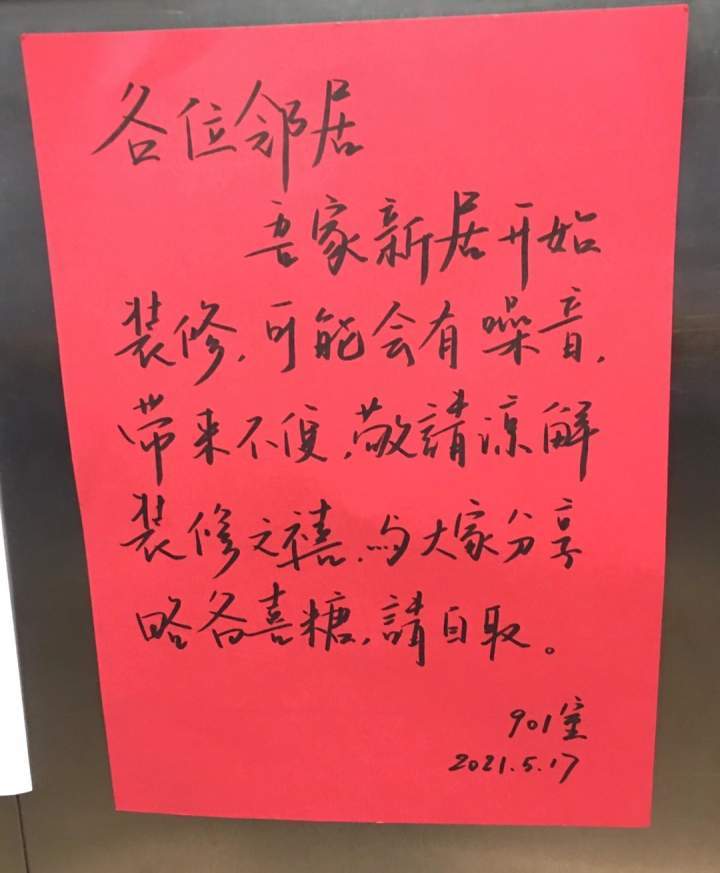 各位邻居
吾家新居开始
装修,可能会有噪音,
带来不便,敬請涼解
装修之禧,与大家分享
略备喜糖,請自取。
901室
2021.5.17